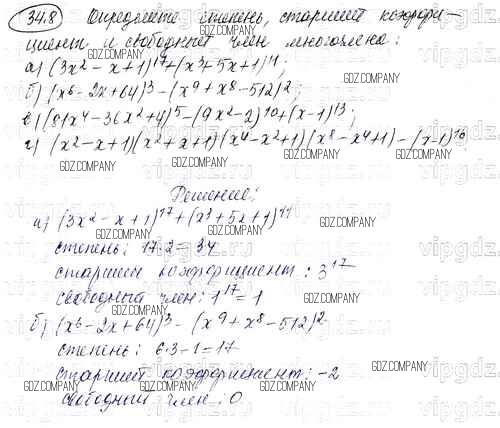 34.8 Определите степень, старший коэффи-
циент и свободный член многочлена:
а) (3x² - x + 1)¹⁷ + (x³ + 5x + 1)¹¹;
б) (x⁶ - 2x + 64)³ - (x⁹ + x⁸ - 512)²;
в) (81x⁴ - 36x² + 4)⁵ - (9x² - 2)¹⁰ + (x - 1)¹³;
г) (x² - x + 1)(x² + x + 1)(x⁴ - x² + 1)(x⁸ - x⁴ + 1) - (x - 1)¹⁶.
Решение:
а) (3x² - x + 1)¹⁷ + (x³ + 5x + 1)¹¹
степень: 17·2 = 34
старший коэффициент: 3¹⁷
свободный член: 1¹⁷ = 1
б) (x⁶ - 2x + 64)³ - (x⁹ + x⁸ - 512)²
степень: 6·3 - 1 = 17
старший коэффициент: -2
свободный член: 0